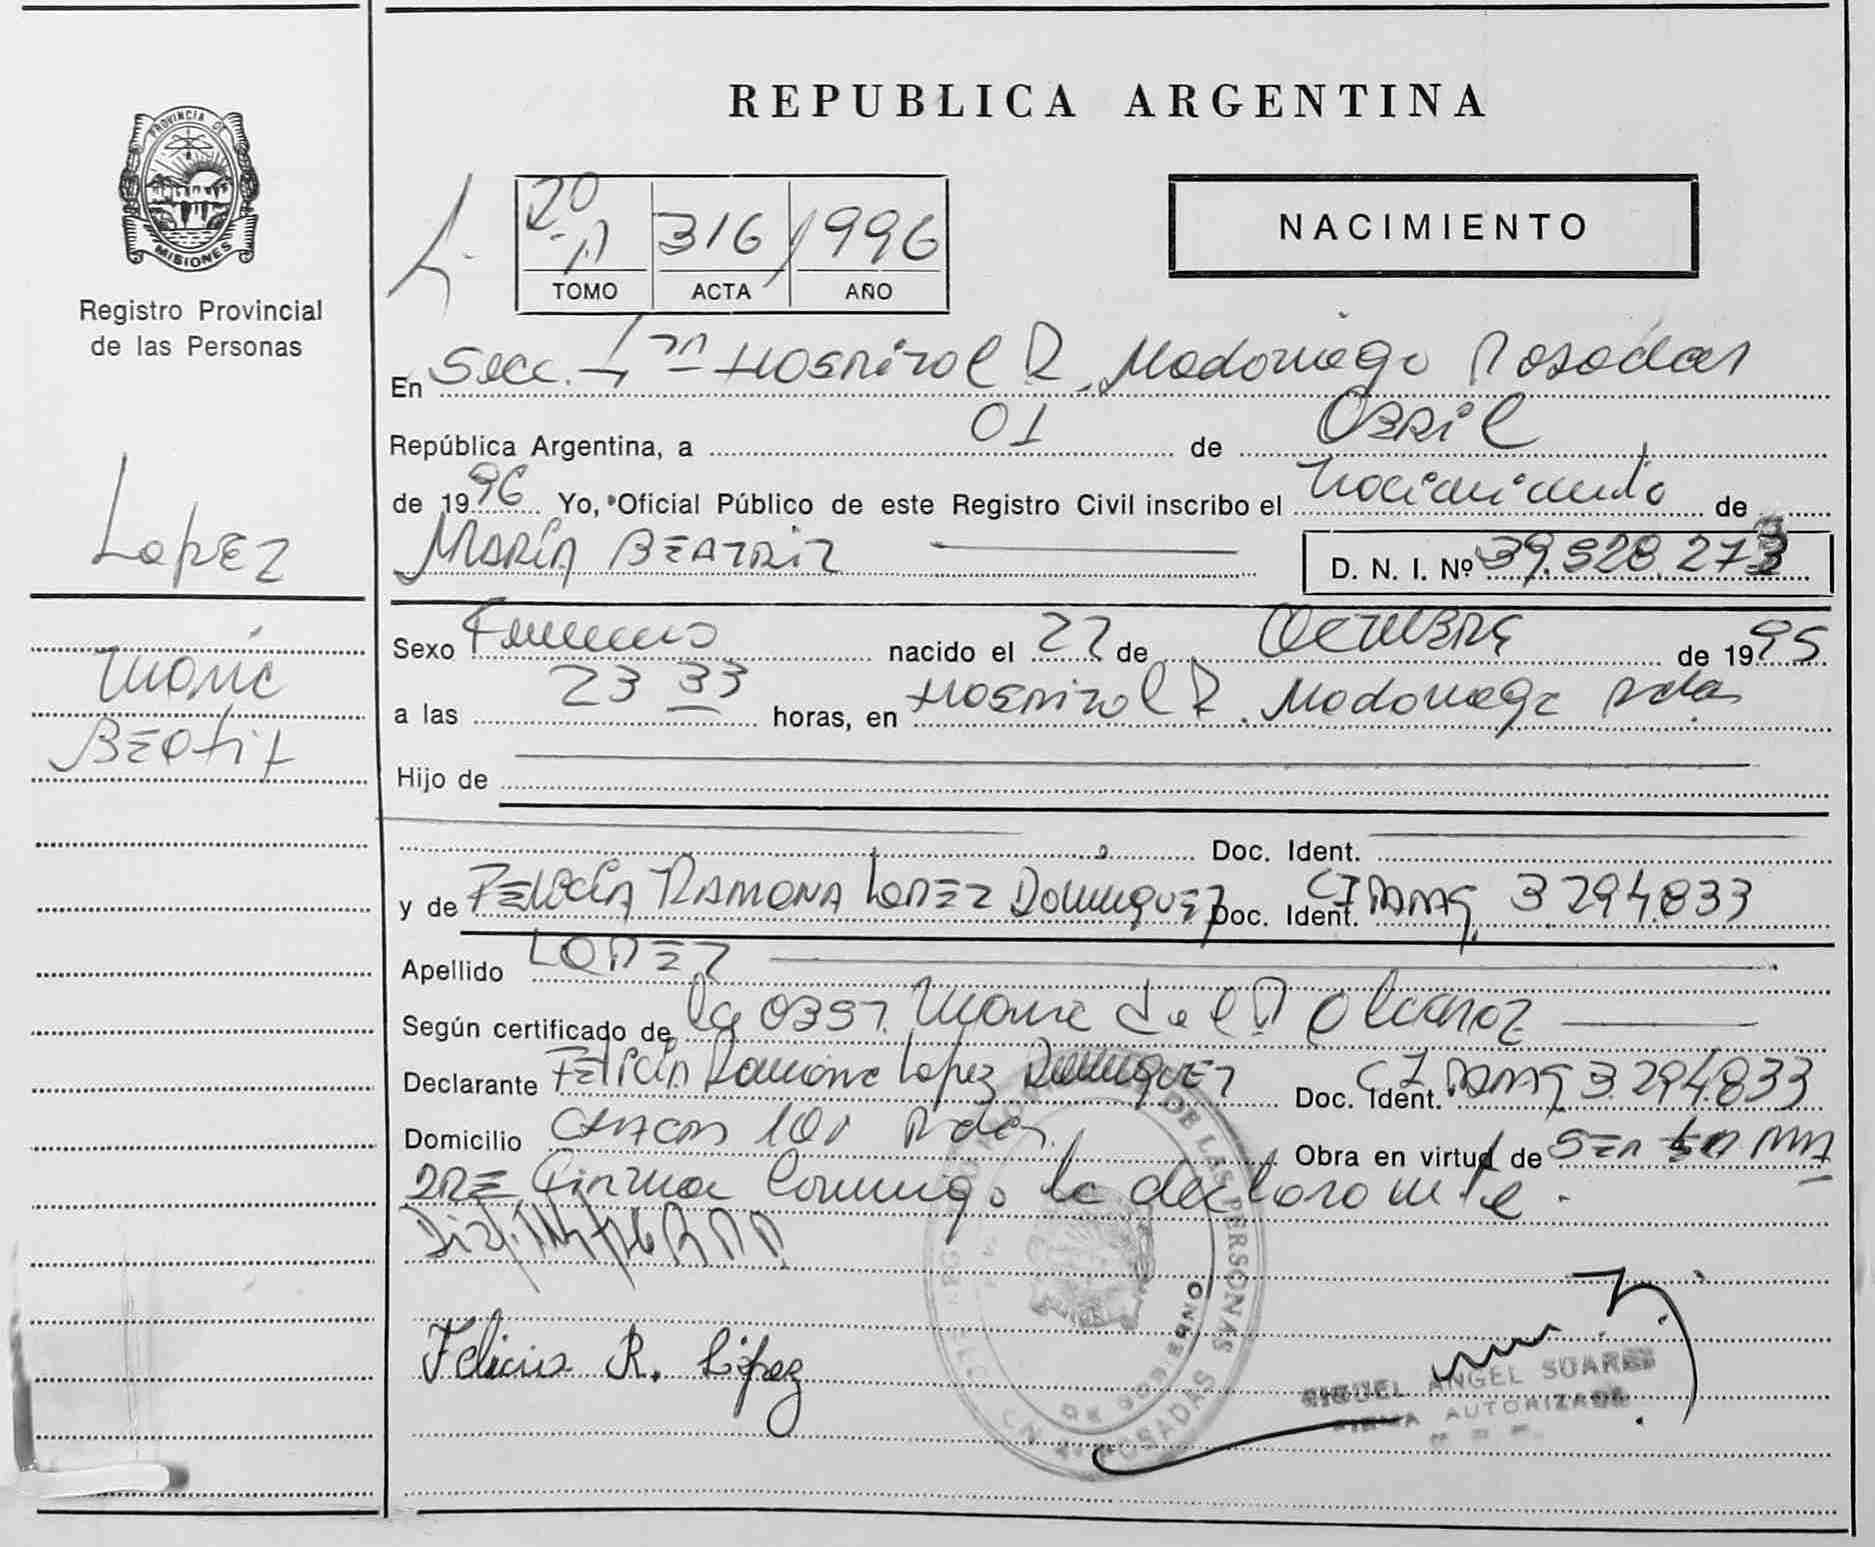 PROVINCIA DE
MISIONES
Registro Provincial
de las Personas
Lopez
Maria
Beatriz
REPUBLICA ARGENTINA
316 1996
TOMO ACTA AÑO
NACIMIENTO
En Secc. 1ra Hospital R. Madariaga Posadas
República Argentina, a 01 de Abril
de 1996 Yo, Oficial Público de este Registro Civil inscribo el nacimiento de
MARÍA BEATRIZ D. N. I. Nº 39.528.273
Sexo Femenino nacido el 22 de Octubre de 1995
a las 23 33 horas, en Hospital R. Madariaga Pdas
Hijo de
Doc. Ident.
y de FELICIA RAMONA LOPEZ DOMINGUEZ Doc. Ident. CI 3294.833
Apellido LOPEZ
Según certificado de la Obst. Maria del
Declarante Felicia Ramona Lopez Dominguez Doc. Ident. CI 3.294.833
Domicilio Pdas. Obra en virtud de ser la MA
DRE Firma conmigo la declarante.
Felicia R. López
DE LAS PERSONAS
DE GOBIERNO
POSADAS
MIGUEL ANGEL SUAREZ
FIRMA AUTORIZADA